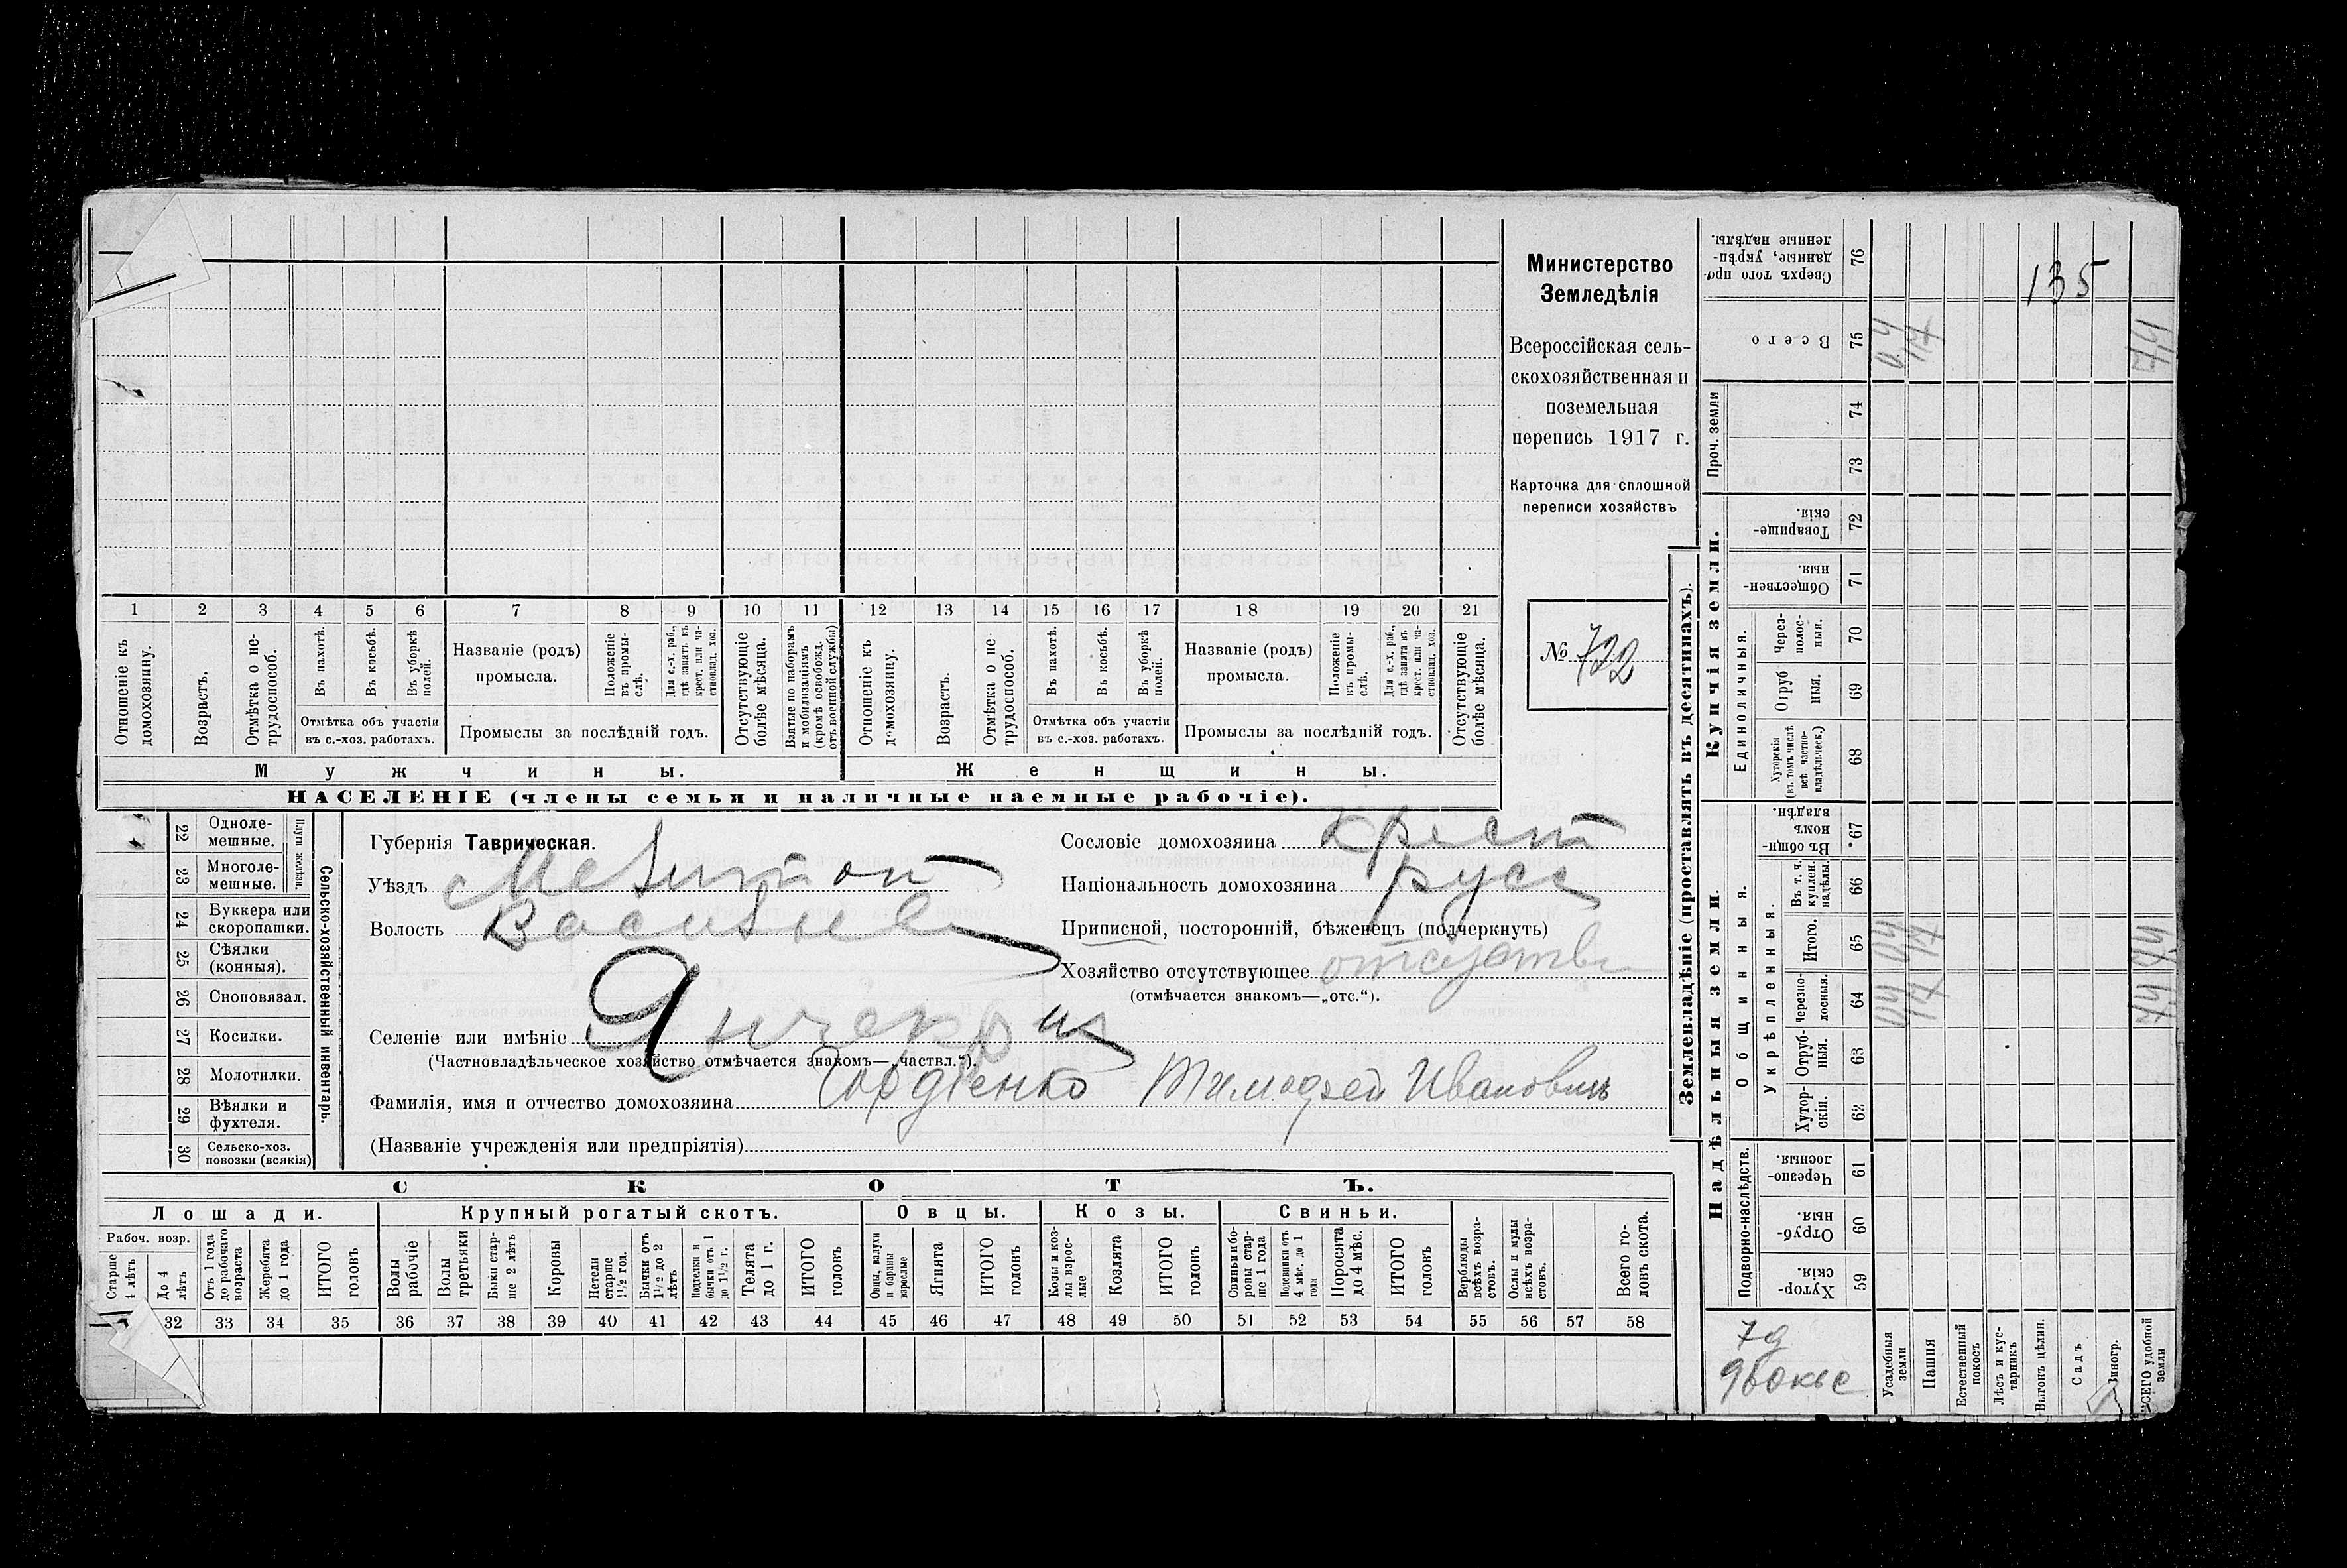 Министерство
Земледѣлія
Всероссійская сель-
скохозяйственная и
поземельная
перепись 1917 г.
Карточка для сплошной
переписи хозяйствъ
№ 722
1 2 3 4 5 6 7 8 9 10 11 12 13 14 15 16 17 18 19 20 21
Отношеніе къ домохозяину.
Возрастъ.
Отмѣтка о не-трудоспособ.
Въ пахотѣ.
Въ косьбѣ.
Въ уборкѣ полей.
Отмѣтка объ участіи
въ с.-хоз. работахъ.
Названіе (родъ)
промысла.
Положеніе въ промы-слѣ.
Для с.-х. раб., гдѣ занятъ въ крест. или ча-стновлад. хоз.
Промыслы за послѣдній годъ.
Отсутствующіе болѣе мѣсяца.
Взятые по наборамъ и мобилизаціямъ (кромѣ освобожд. отъ военной службы)
Отношеніе къ домохозяину.
Возрастъ.
Отмѣтка о не-трудоспособ.
Въ пахотѣ.
Въ косьбѣ.
Въ уборкѣ полей.
Отмѣтка объ участіи
въ с.-хоз. работахъ.
Названіе (родъ)
промысла.
Положеніе въ промы-слѣ.
Для с.-х. раб., гдѣ занята въ крест. или ча-стновлад. хоз.
Промыслы за послѣдній годъ.
Отсутствующіе болѣе мѣсяца.
Мужчины.
Женщины.
НАСЕЛЕНІЕ (члены семьи и наличные наемные рабочіе).
22 Одноле-мешные.
23 Многоле-мешные.
Плуги желѣзн.
24 Буккера или скоропашки.
25 Сѣялки (конныя).
26 Сноповязал.
27 Косилки.
28 Молотилки.
29 Вѣялки и фухтеля.
30 Сельско-хоз. повозки (всякія)
Сельско-хозяйственный инвентарь.
Губернія Таврическая.
Уѣздъ Мелитоп
Волость Васильев
Селеніе или имѣніе Янчекр
(Частновладѣльческое хозяйство отмѣчается знакомъ—„частвл.“).
Фамилія, имя и отчество домохозяина Гордіенко Тимофей Ивановичъ
(Названіе учрежденія или предпріятія)
Сословіе домохозяина крест
Національность домохозяина русс
Приписной, посторонній, бѣженецъ (подчеркнуть)
Хозяйство отсутствующее отсутств
(отмѣчается знакомъ—„отс.“).
СКОТЪ.
Лошади.
Крупный рогатый скотъ.
Овцы.
Козы.
Свиньи.
Рабоч. возр.
Старше 4 лѣтъ
До 4 лѣтъ
Отъ 1 года до рабочаго возраста
Жеребята до 1 года
ИТОГО головъ
Волы рабочіе
Волы третьяки
Быки стар-ше 2 лѣтъ
Коровы
Нетели старше 1½ год.
Бычки отъ 1½ до 2 лѣтъ
Подтелки и бычки отъ 1 до 1½ г.
Телята до 1 г.
ИТОГО головъ
Овцы, валухи и бараны взрослые
Ягнята
ИТОГО головъ
Козы и коз-лы взрос-лые
Козлята
ИТОГО головъ
Свиньи и бо-ровы стар-ше 1 года
Подсвинки отъ 4 мѣс. до 1 года
Поросята до 4 мѣс.
ИТОГО головъ
Верблюды всѣхъ возра-стовъ.
Ослы и мулы всѣхъ возра-стовъ.
Всего го-ловъ скота.
32 33 34 35 36 37 38 39 40 41 42 43 44 45 46 47 48 49 50 51 52 53 54 55 56 57 58
Землевладѣніе (проставлять въ десятинахъ).
Купчія земли.
Надѣльныя земли.
Сверхъ того про-данные, укрѣп-ленные надѣлы. 76
135
Всего 75
Проч. земли
74
73
Товарище-скія. 72
Обществен-ныя. 71
Единоличныя.
Через-полос-ныя. 70
Отруб ныя. 69
Хуторскія (въ томъ числѣ всѣ частно-владѣльческ.) 68
Общинныя.
Въ общи-номъ владѣн. 67
Укрѣпленныя.
Въ т. ч. куплен. надѣлы. 66
Итого. 65
Черезпо-лосныя. 64
Отруб-ныя. 63
Хутор-скія. 62
Подворно-наслѣдств.
Черезпо-лосныя. 61
Отруб-ныя. 60
Хутор-скія. 59
Усадебныя земли
Пашня
Естественный покосъ
Лѣсъ и кус-тарникъ
Выгонъ цѣлин.
Садъ
Виногр.
ВСЕГО удобной земли